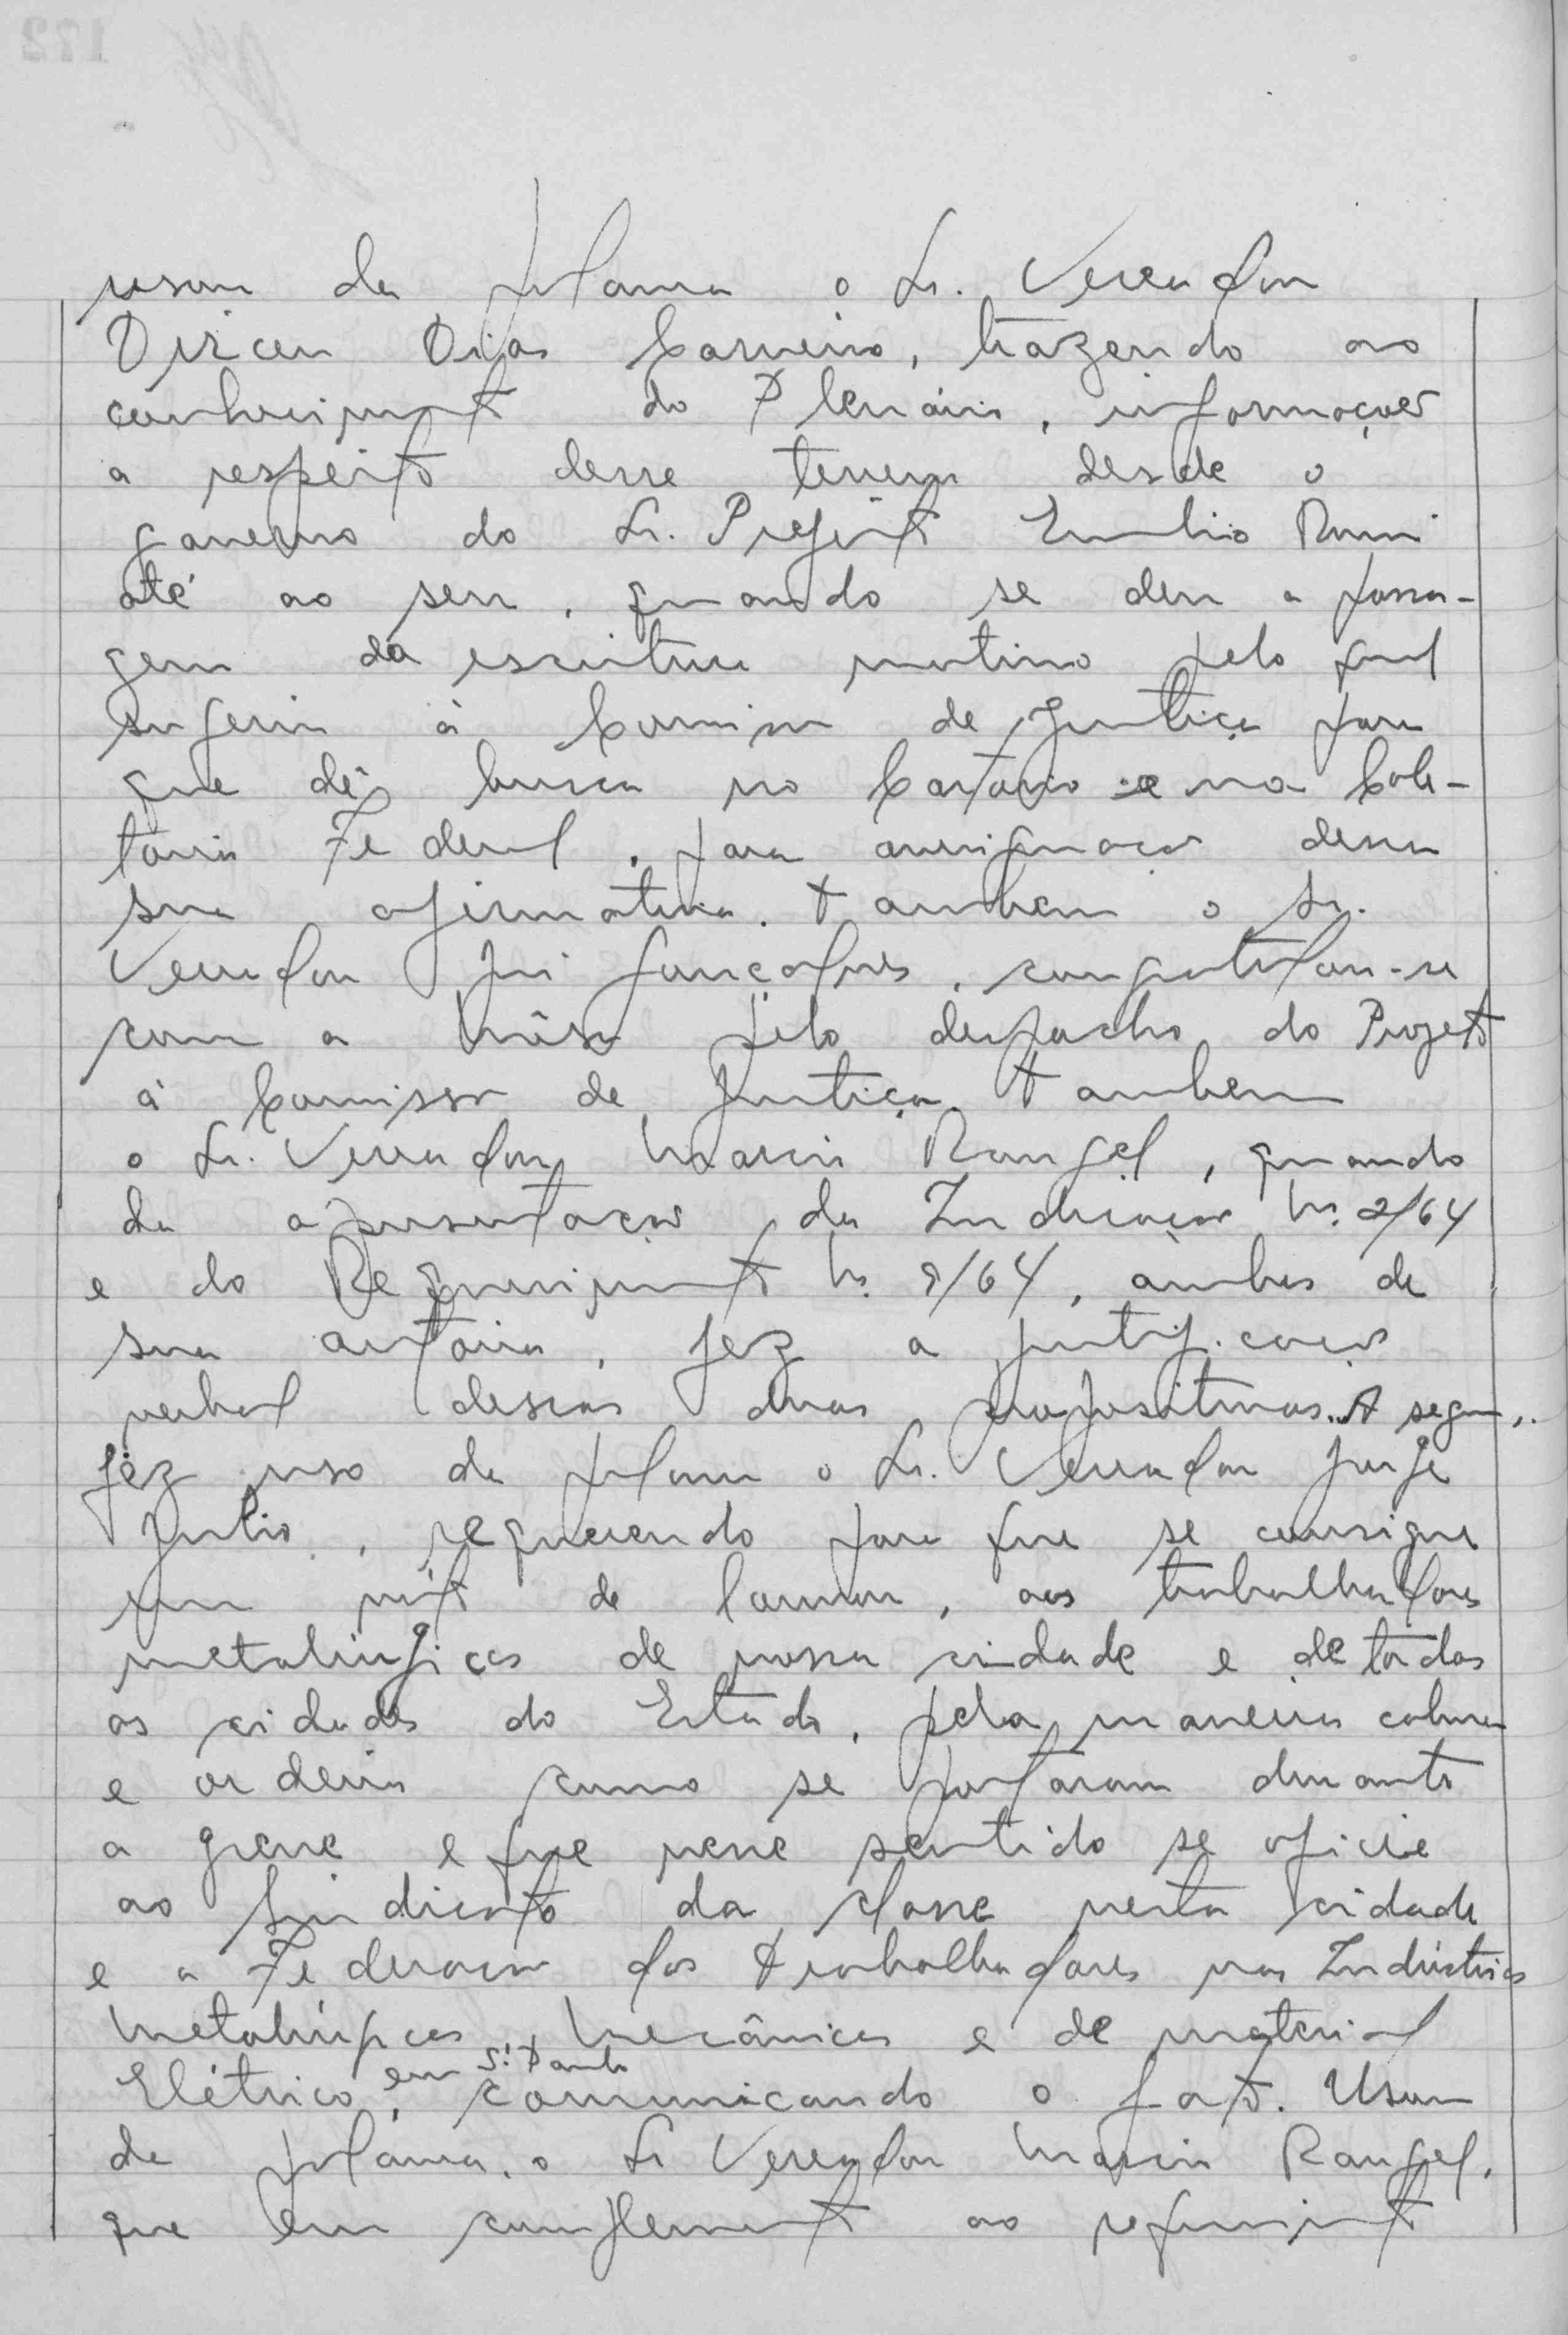 usou da palavra o Sr. Vereador
Dirceu Dias Carneiro, trazendo ao
conhecimento do Plenário, informações
a respeito desse terreno desde o
governo do Sr. Prefeito Emilio Romi
até ao seu, quando se deu a passa-
gem da escritura motivo pelo qual
sugeria à Comissão de Justiça para
que dê busca no Cartório e na Cole-
toria Federal, para averiguação dessa
sua afirmativa. Também o Sr.
Vereador Gonçalves, congratulou-se
com a Mêsa pelo despacho do Projeto
à Comissão de Justiça. Também
o Sr. Vereador Mario Rangel, quando
da apresentação da Indicação Nº. 2/64
e do Requerimento Nº. 9/64, ambos de
sua autoria, fez a justificação
verbal dessas duas propositivas. A segu..
fez uso da palavra o Sr. Vereador Jorge
Julio, requerendo para que se consigne
um voto de louvor, aos trabalhadores
metalúrgicos de nossa cidade e de tôdas
as cidades do Estado, pela maneira calma
e ordeira como se portaram durante
a greve e que nesse sentido se oficie
ao Sindicato da classe nesta cidade
e a Federação dos Trabalhadores nas Indústrias
Metalúrgicas, Mecânicas e de material
Elétrico, em S. Paulo comunicando o fato. Usou
da palavra, o Sr Vereador Mario Rangel,
que em complemento ao requerimento
172